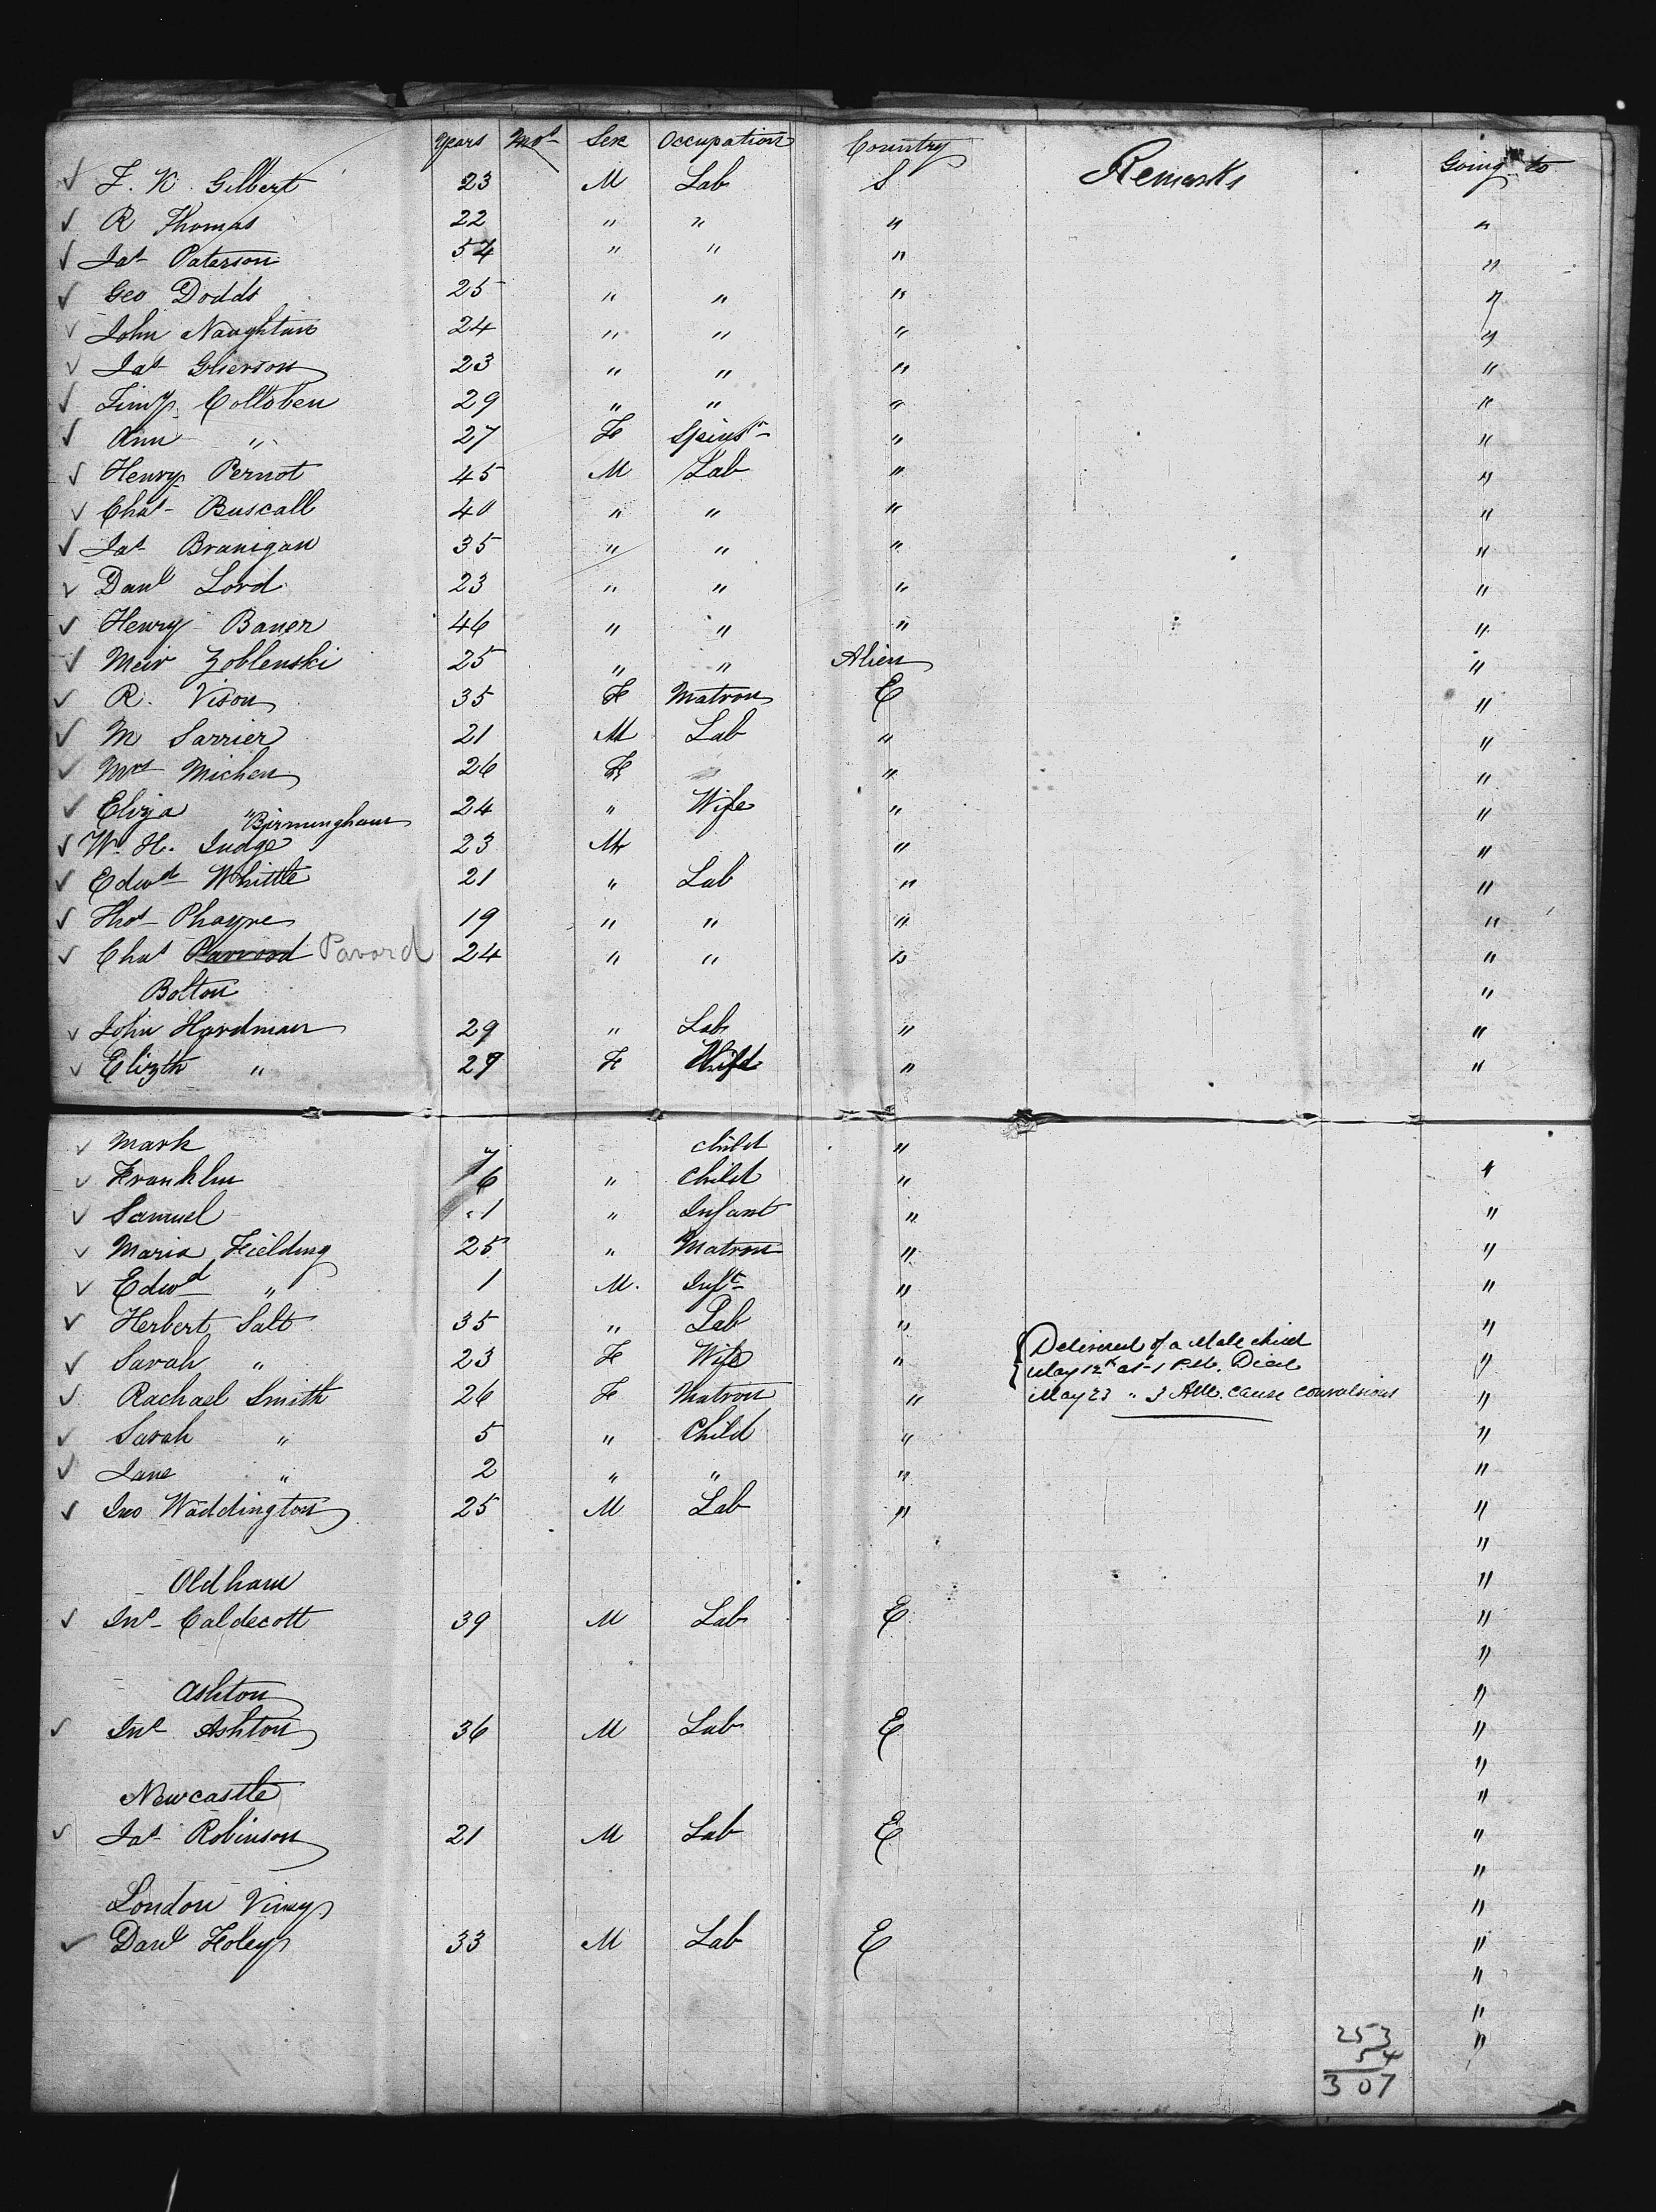 Years Mos Sex Occupation Country Remarks Going to
✓ F. K. Gilbert 23 M Lab S
✓ R Thomas 22 " " " "
✓ Jas Paterson 54 " " " "
✓ Geo Dodds 25 " " " "
✓ John Naughtan 24 " " " "
✓ Jas Grierson 23 " " " "
✓ Timy 29 " " " "
✓ Ann " 27 F Spinsr " "
✓ Henry Pernot 45 M Lab " "
✓ Chas Buscall 40 " " " "
✓ Jas Branigan 35 " " " "
✓ Danl Lord 23 " " " "
✓ Henry Baner 46 " " " "
✓ Meir Zoblenski 25 " " Alien "
✓ R. Vison 35 F Matron E "
✓ M Sarrier 21 M Lab " "
✓ Mrs Michen 26 F " "
✓ Eliza " 24 " Wife " "
Birmingham
✓ W. H. Judge 23 M " "
✓ Edwd Whittle 21 " Lab " "
✓ Thos Phayre 19 " " " "
✓ Chas Pavord 24 " " " "
Bolton "
✓ John Hardman 29 " Lab " "
✓ Elizth " 29 F Wife " "
✓ Mark 7 child "
✓ Franklin 6 " Child " "
✓ Samuel 1 " Infant " "
✓ Maria Fielding 25 " Matron " "
✓ Edwd " 1 M. Inft " "
✓ Herbert Salt 35 " Lab " "
✓ Sarah " 23 F Wife " Delivered of a Male child "
May 12th at 1 P.M. Died
✓ Rachael Smith 26 F Matron " May 23 " 3 AM. cause convulsions "
✓ Sarah " 5 " Child " "
✓ Jane " 2 " " " "
✓ Jno Waddington 25 M Lab " "
"
Oldham "
✓ Jno Caldecott 39 M Lab E "
"
Ashton "
✓ Jno Ashton 36 M Lab E "
"
Newcastle "
✓ Jas Robinson 21 M Lab E "
"
London "
✓ Danl Foley 33 M Lab E "
"
"
253 "
54
307